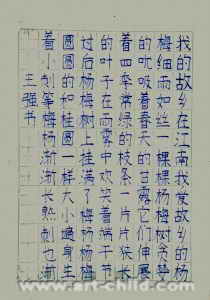 我的故乡在江南我爱故乡的杨
梅细雨如丝一棵棵杨梅树贪婪
的吮吸着春天的甘露它们伸展
着四季常绿的枝条一片片狭长
的叶子在雨雾中欢笑着端午节
过后杨梅树上挂满了梅杨梅
圆圆的和桂圆一样大小遍身生
着小刺等梅杨渐渐长熟刺也渐
王强书
www.art-child.com